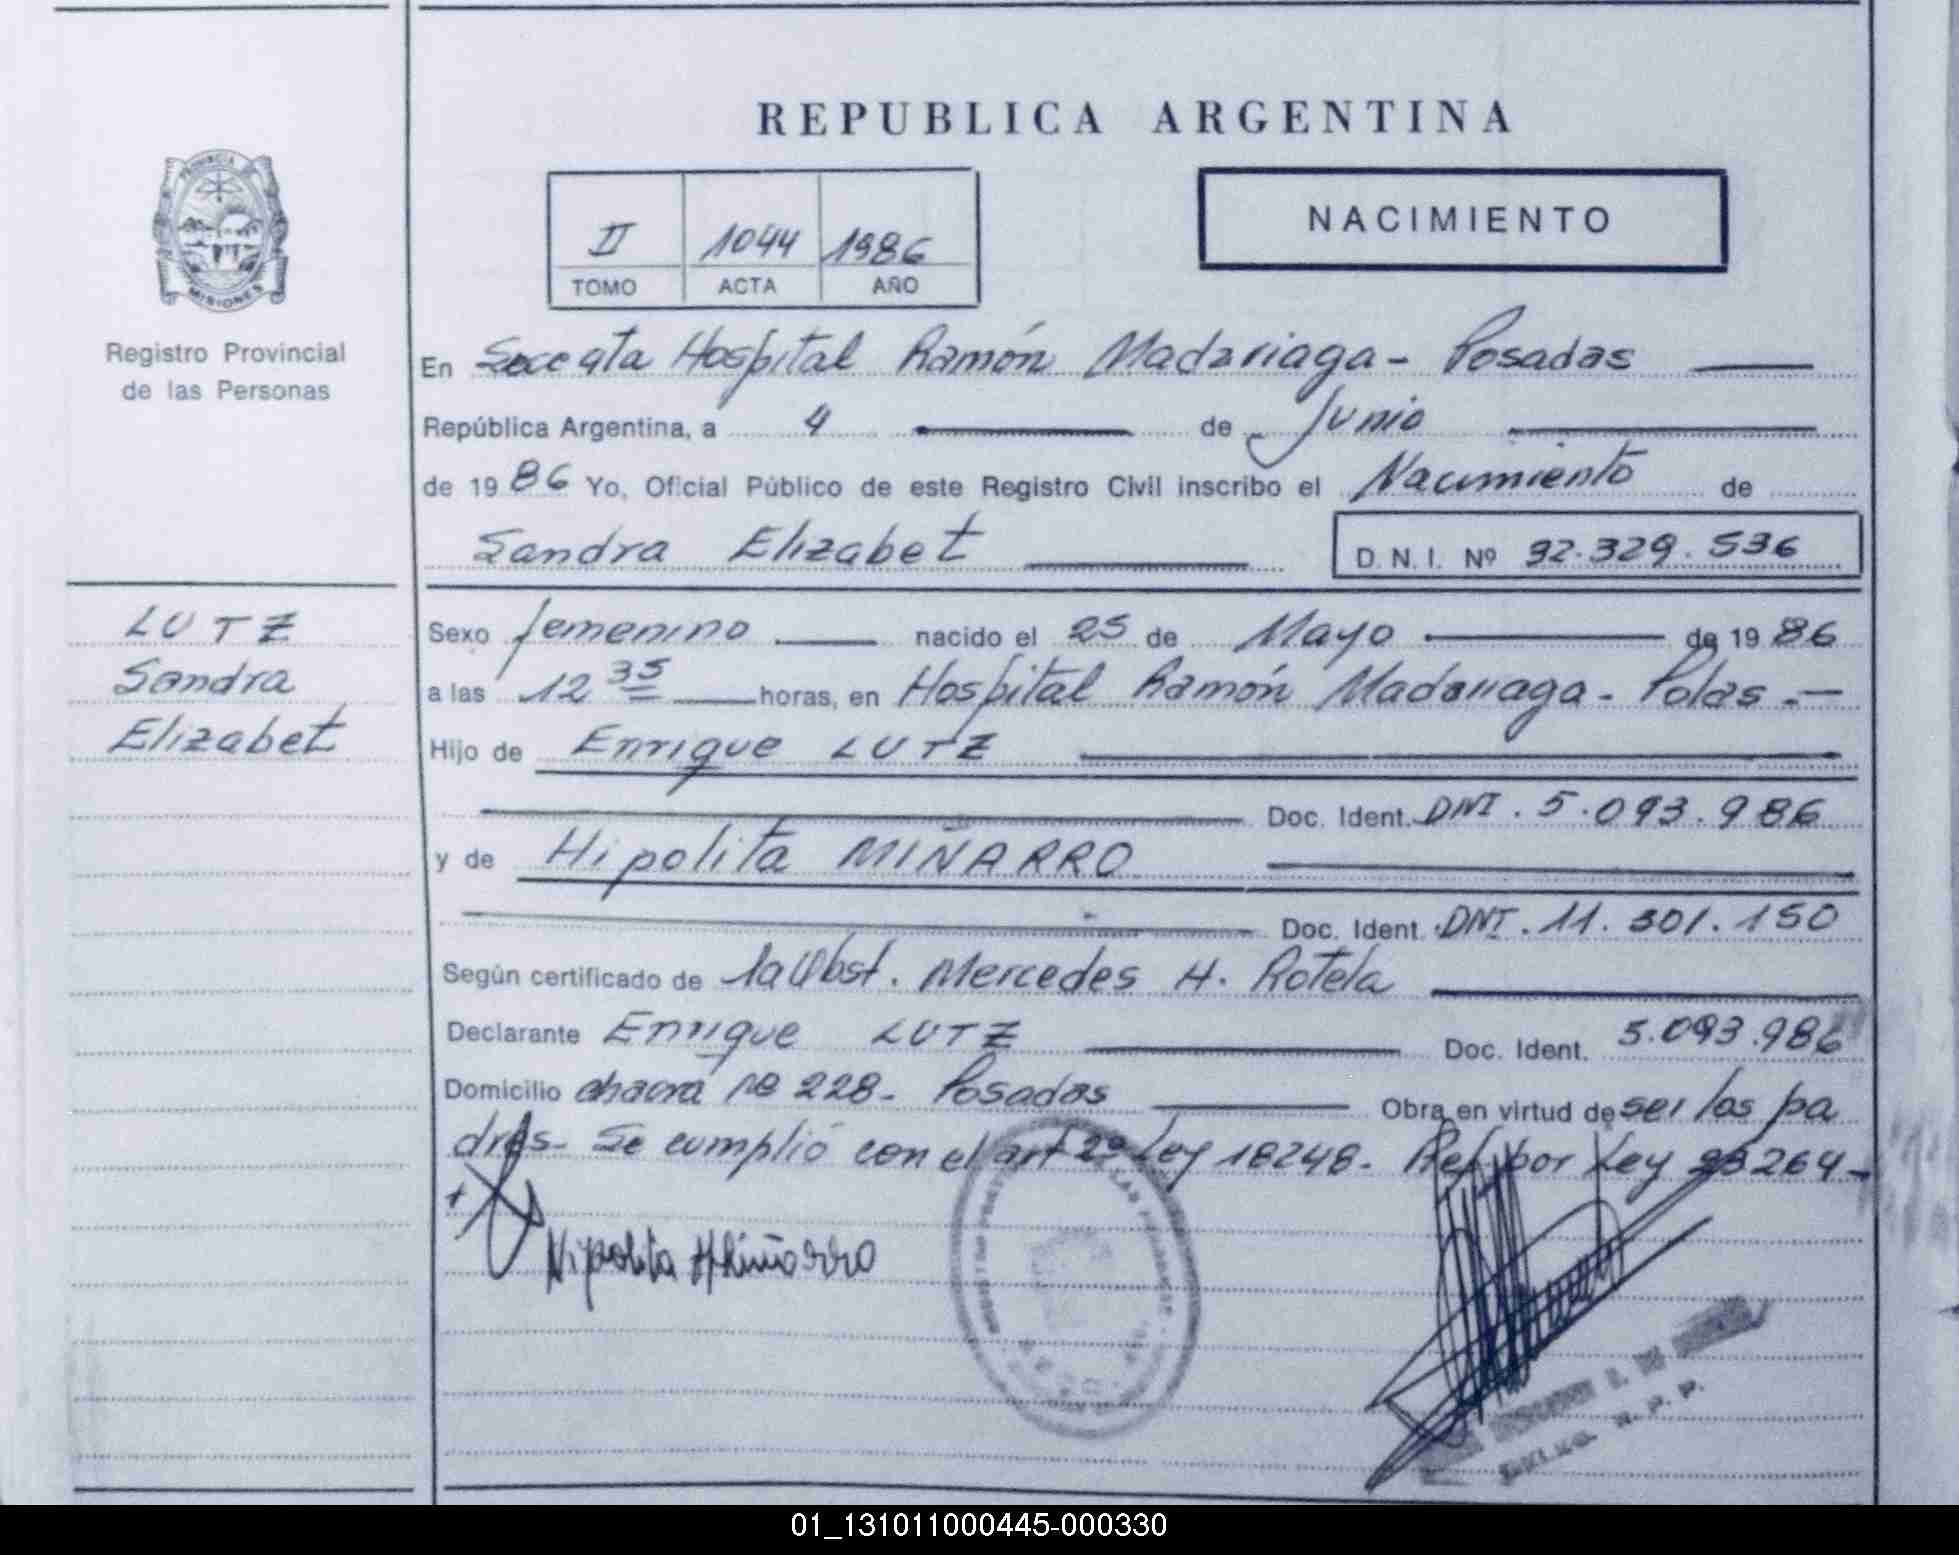 REPUBLICA ARGENTINA
PROVINCIA
MISIONES
Registro Provincial
de las Personas
II 1044 1986
TOMO ACTA AÑO
NACIMIENTO
En Hospital Ramón Madariaga - Posadas
República Argentina, a 4 de Junio
de 19 86 Yo, Oficial Público de este Registro Civil inscribo el Nacimiento de
Sandra Elizabet D. N. I. Nº 32.329.536
LUTZ
Sandra
Elizabet
Sexo femenino nacido el 25 de Mayo de 19 86
a las 12 35 horas, en Hospital Ramón Madariaga - Pdas.-
Hijo de Enrique LUTZ
Doc. Ident. DNI. 5.093.986
y de Hipolita MIÑARRO
Doc. Ident. DNI. 11.301.150
Según certificado de la Obst. Mercedes H. Rotela
Declarante Enrique LUTZ Doc. Ident. 5.093.986
Domicilio chacra Nº 228- Posadas Obra en virtud de ser los pa
dres- Se cumplió con el art 2º Ley 18248- Ref. por Ley 23264-
Hipolita Miñarro
R. P. P.
01_131011000445-000330